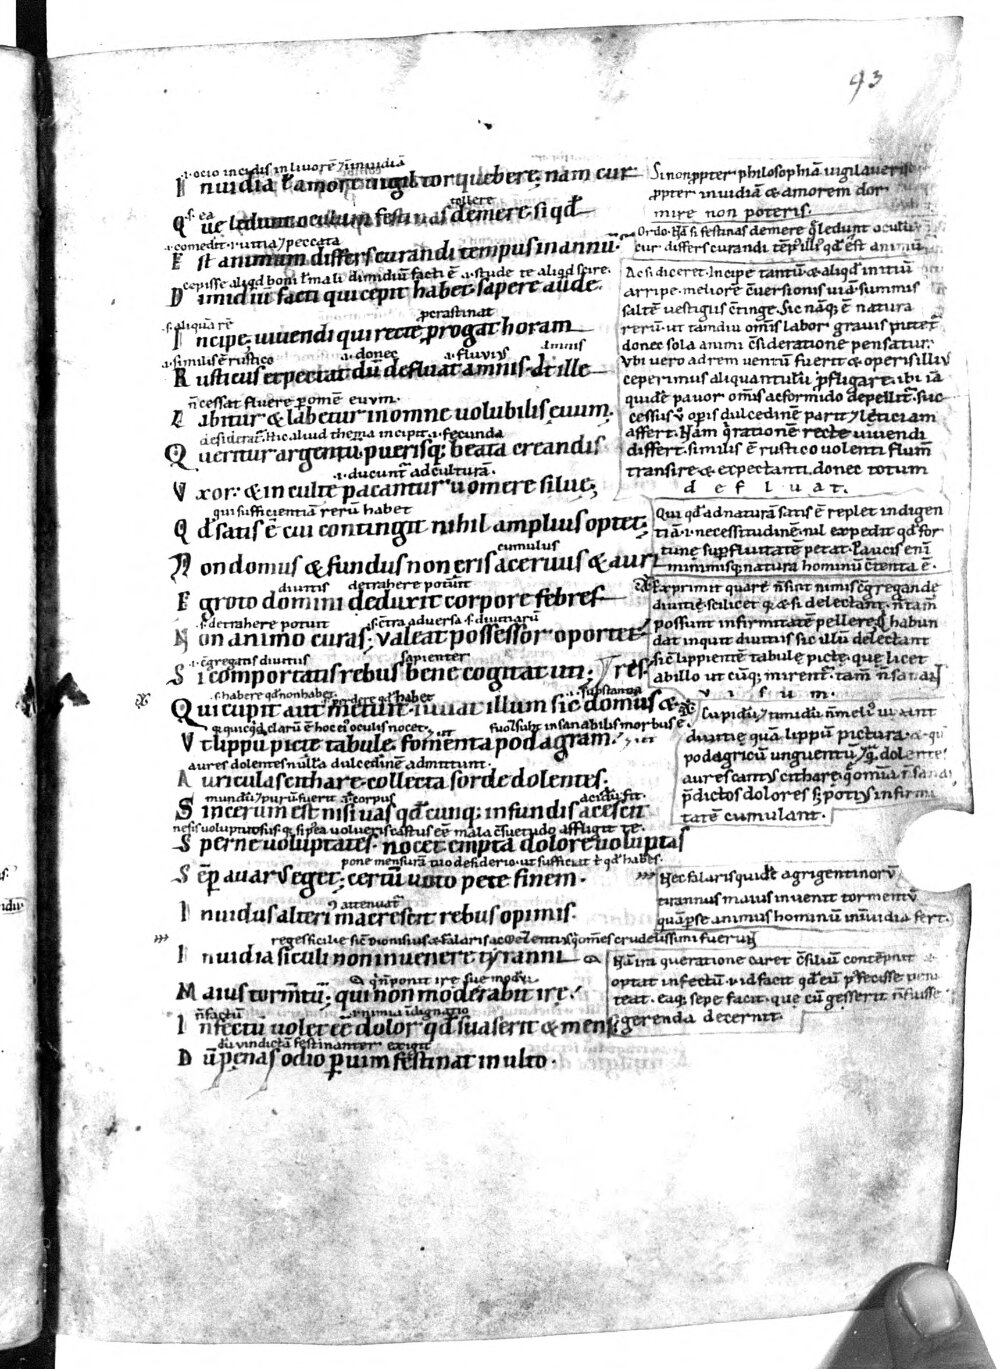 93
.i. ocio incidis in livorē ⁊ īinuidiā
Inuidia ł amore uigil torquebere; nam cur
.s. ea tollere
Quę ledunt oculum festinas demere. si qđ
.i. comedit. i. uitia ⁊ peccata
Est animum differs curandi tempus in annū.
cepisse aliqđ boni ł mali dimidiū facti ē .i. stude te aliqđ scire.
Dimidiū facti qui cepit habet. sapere aude.
.s. aliquā rē perastinat
Incipe; uiuendi qui recte progat horam
.i. similis ē rustico .i. donec .i. fluvi⁹ amnis
Rusticus expectat dū defluat amnis. at ille
n̄ cessat fluere p omē euym.
Labitur & labetur in omne uolubilis euum.
desiderat̄. Hic aliud thema incipit .i. fecunda
Queritur argentū. puerisq; beata creandis
.i. ducunt̄ ad culturā.
Vxor. & inculte pacantur uomere silue;
qui sufficientiū rerū habet
Qđ satis ē cui contingit nihil amplius optet;
cumulus
Non domus & fundus non eris aceruus & auri
diuitis detrahere potuit
Egroto domini deduxit corpore febres
.s. detrahere potuit .s. c̄tra adversa .s. diuitiarū
Non animo curas; valeat possessor oportet
.i. c̄gregatis diuitiis sapienter
Si comportatis rebus bene cogitat uti; Tres
.s. habere qđ non habet .s. perdere qđ habet substantia
Qui cupit aut metuit. iuuat illum sic domus & res
qꝛ quicqđ clarū ē hoc ei oculis nocet insanabilis morbus ē.
Vt lippū picte tabule. fomenta podagram.
aures dolentes nulla dulcedinē admittunt.
Auriculas cithare collecta sorde dolentes.
mundū ⁊ purū fuerit .i. corpus acidū fit.
Sincerum est nisi uas qđcunq; infundis acescit
Sperne uoluptates. nocet empta dolore uoluptas
pone mensurā tuo desiderio. ut sufficiat t̄ qđ habes.
Sēp auarus eget; certū uoto pete finem.
attenuat̄
Inuidus alterius macrescit rebus opimis.
reges sicilie sic̄ dionisius & falaris ac crudelissimi fuerunt
Inuidia siculi non inuenere tyranni
qͥ n̄ ponit ire sue modū
Maius torm̄tū; qui non moderabit ire.
n̄ factū nimia idignatio
Infectū uolet eē dolor qđ suaserit & mens
dū vindictā festinanter exigit
Dū pęnas odio p uim festinat inulto.
Si non ppter philosophiā vigilaveris
ppter inuidiā & amorem dor
mire non poteris.
Ordo. Nā si festinas demere q̄ ledunt oculū
cur differs curandi tēpꝰ illꝰ qđ ēst animū
Ac si diceret. Incipe tantū & aliqđ initiū
arripe. meliorē c̄versionis uiā. summis
saltē vestigiis c̄tinge. Sic nāq; ē natura
rerū. ut tamdiu om̄is labor grauis putet̄.
donec sola animi c̄sideratione pensatur.
Vbi vero ad rem ventū fuerit & operis illiꝰ
ceperimus aliquantulū pfligare. ibi iā
quidē pavor om̄is ac formido depellit̄. suc
cessus v̄ opis dulcedinē parit ⁊ lętitiam
affert. Nam q̄ rationē recte uiuendi
differt. similis ē rustico volenti flum̄
transire & expectanti. donec totum
defluat.
Qui qđ ad naturā satis ē replet indigen
tiā. i. necessitudinē. nil expedit qđ for
tune supfluitatē petat. Paucis eni
minimisq; natura hominū c̄tenta ē.
Exprimit quare n̄ sint nimis c̄gregande
diuitię. scilicet qꝛ & si delectant. n̄ tam
possunt infirmitatē pellere. q̄ habun
dat inquit diuitiis sic illū delectant
sic̄ lippientē tabulę picte. que licet
abillo utcūq; mirent̄. tam n̄ sanant
visum.
Cupidū ⁊ timidū n̄ meliꝰ iuuant
diuitię quā lippū pictura
podagricū unguentū ⁊ q̄ dolente
aures cantus citharę. q̄ omia n̄ sana
p̄dictos dolores. s; potiꝰ infirmi
tatē cumulant.
Nec falaris quidē agrigentinorū
tirannus maius inuenit tormentū
quā pse animus hominū inuidia fert.
Nā ira que ratione caret c̄siliū contēpnit &
optat infectū. vid facit qđ eū pfecisse peni
teat. Eaq; sepe facit. que cū gesserit n̄ fuisse
gerenda decernit.